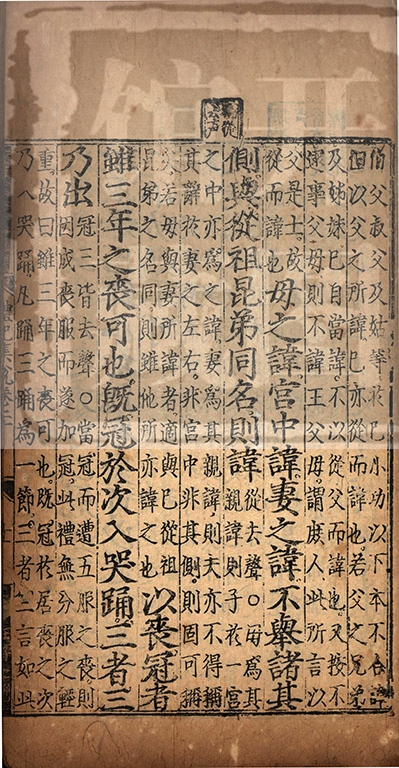 伯父叔父及姑等於己小功以下本不合諱
但以父之所諱己亦從而諱也若父之兄弟
及姊妹己自當諱不以從父而諱也又按不
逮事父母則不諱王父母謂庶人此所言以
父是士故
從而諱也
母之諱宮中諱妻之諱不舉諸其
側與從祖昆弟同名則諱
從去聲○母為其
親諱則子於一宮
之中亦為之諱妻為其親諱則夫亦不得稱
其辭於妻之左右非宮中非其側則固可稱
矣若母與妻所諱者適與己從祖
昆弟之名同則雖他所亦諱之也
以喪冠者
雖三年之喪可也既冠於次入哭踊三者三
乃出
冠三皆去聲○當冠而遭五服之喪則
因成喪服而遂加冠此禮無分服之輕
重故曰雖三年之喪可也既冠於居喪之次
乃入哭踊凡踊三踊為一節三者三言如此